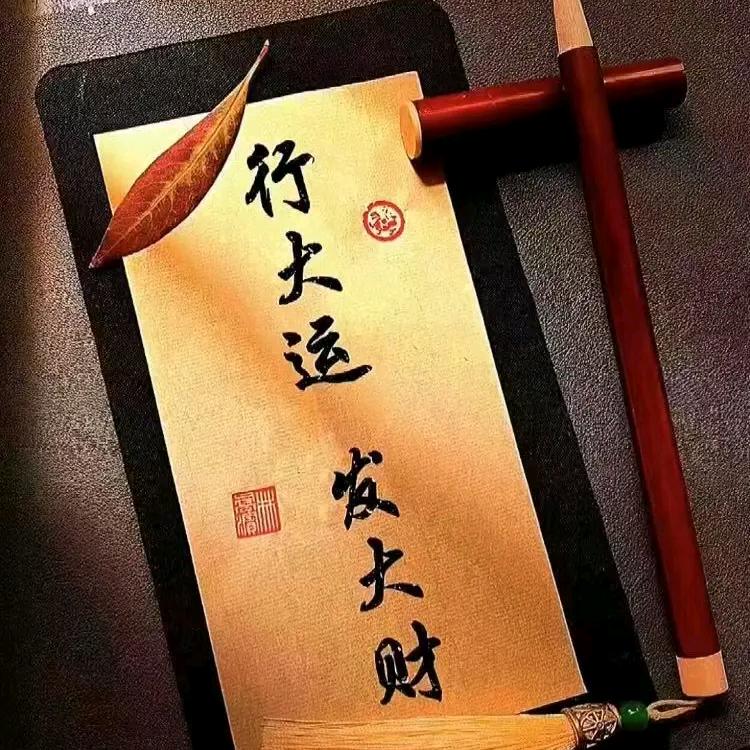 行大运
发大财